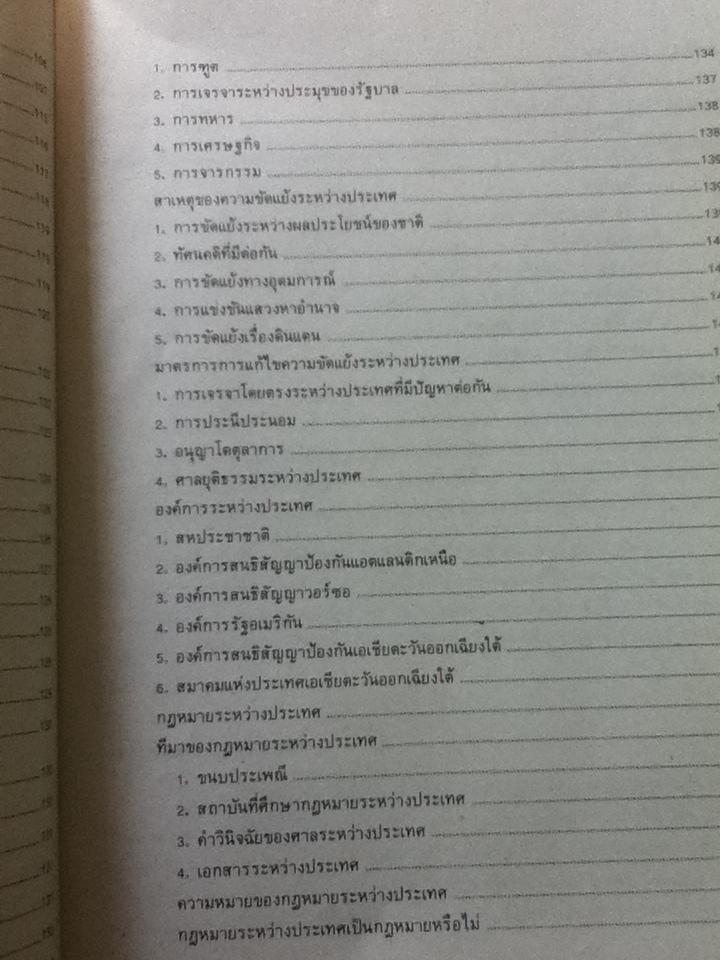 1. การทูต 134
2. การเจรจาระหว่างประมุขของรัฐบาล 137
3. การทหาร 138
4. การเศรษฐกิจ 138
5. การจารกรรม 139
สาเหตุของความขัดแย้งระหว่างประเทศ 139
1. การขัดแย้งระหว่างผลประโยชน์ของชาติ
2. ทัศนคติที่มีต่อกัน
3. การขัดแย้งทางอุดมการณ์
4. การแข่งขันแสวงหาอำนาจ
5. การขัดแย้งเรื่องดินแดน
มาตรการการแก้ไขความขัดแย้งระหว่างประเทศ
1. การเจรจาโดยตรงระหว่างประเทศที่มีปัญหาต่อกัน
2. การประนีประนอม
3. อนุญาโตตุลาการ
4. ศาลยุติธรรมระหว่างประเทศ
องค์การระหว่างประเทศ
1. สหประชาชาติ
2. องค์การสนธิสัญญาป้องกันแอตแลนติกเหนือ
3. องค์การสนธิสัญญาวอร์ซอ
4. องค์การรัฐอเมริกัน
5. องค์การสนธิสัญญาป้องกันเอเชียตะวันออกเฉียงใต้
6. สมาคมแห่งประเทศเอเชียตะวันออกเฉียงใต้
กฎหมายระหว่างประเทศ
ที่มาของกฎหมายระหว่างประเทศ
1. ขนบประเพณี
2. สถาบันที่ศึกษากฎหมายระหว่างประเทศ
3. คำวินิจฉัยของศาลระหว่างประเทศ
4. เอกสารระหว่างประเทศ
ความหมายของกฎหมายระหว่างประเทศ
กฎหมายระหว่างประเทศเป็นกฎหมายหรือไม่